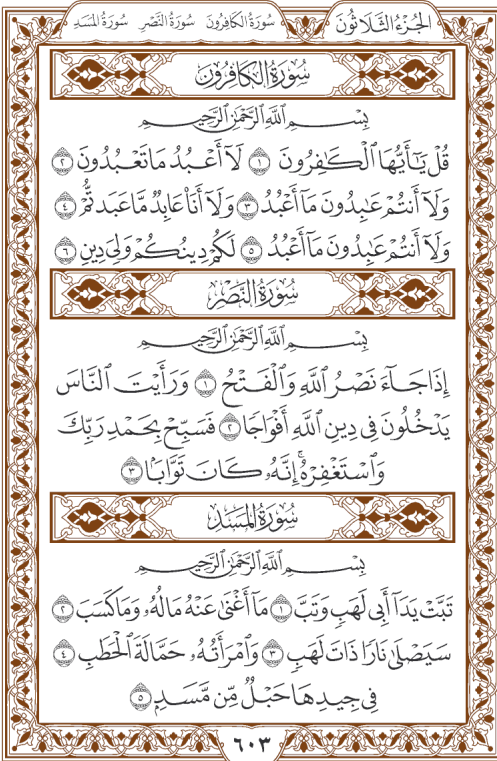 الجُزْءُ الثَّلَاثُونَ سُورَةُ الكَافِرُونَ سُورَةُ النَّصْرِ سُورَةُ المَسَدِ
سُورَةُ الكَافِرُونَ
بِسْمِ ٱللَّهِ ٱلرَّحْمَٰنِ ٱلرَّحِيمِ
قُلْ يَٰٓأَيُّهَا ٱلْكَٰفِرُونَ ١ لَآ أَعْبُدُ مَا تَعْبُدُونَ ٢
وَلَآ أَنتُمْ عَٰبِدُونَ مَآ أَعْبُدُ ٣ وَلَآ أَنَا۠ عَابِدٌ مَّا عَبَدتُّمْ ٤
وَلَآ أَنتُمْ عَٰبِدُونَ مَآ أَعْبُدُ ٥ لَكُمْ دِينُكُمْ وَلِيَ دِينِ ٦
سُورَةُ النَّصْرِ
بِسْمِ ٱللَّهِ ٱلرَّحْمَٰنِ ٱلرَّحِيمِ
إِذَا جَآءَ نَصْرُ ٱللَّهِ وَٱلْفَتْحُ ١ وَرَأَيْتَ ٱلنَّاسَ
يَدْخُلُونَ فِي دِينِ ٱللَّهِ أَفْوَاجًا ٢ فَسَبِّحْ بِحَمْدِ رَبِّكَ
وَٱسْتَغْفِرْهُ ۚ إِنَّهُۥ كَانَ تَوَّابًۢا ٣
سُورَةُ المَسَدِ
بِسْمِ ٱللَّهِ ٱلرَّحْمَٰنِ ٱلرَّحِيمِ
تَبَّتْ يَدَآ أَبِي لَهَبٍ وَتَبَّ ١ مَآ أَغْنَىٰ عَنْهُ مَالُهُۥ وَمَا كَسَبَ ٢
سَيَصْلَىٰ نَارًا ذَاتَ لَهَبٍ ٣ وَٱمْرَأَتُهُۥ حَمَّالَةَ ٱلْحَطَبِ ٤
فِي جِيدِهَا حَبْلٌ مِّن مَّسَدٍۭ ٥
٦٠٣